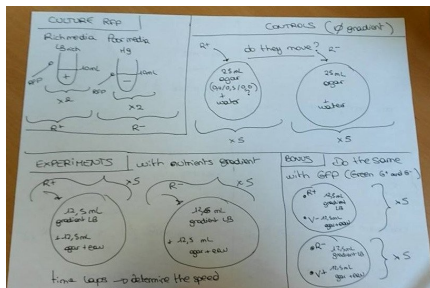 CULTURE RFP
Rich media
Poor media
LB rich
M9
10mL
10mL
RFP
RFP
x2
x2
R+
R-
CONTROLS (Ø gradient)
do they move?
R+
R-
25mL
agar
+
water
25mL
agar
+
water
x5
x5
EXPERIMENTS with nutrients gradient
R+
x5
12,5 mL
gradient LB
+ 12,5 mL
agar + eau
R-
x5
12,5 mL
gradient LB
+ 12,5 mL
agar + eau
time laps → determine the speed
BONUS
Do the same
with GFP (Green G+ and G-)
R+
12,5mL
gradient
LB
V-
12,5mL
agar+eau
x5
R-
12,5mL
gradient LB
V+
12,5mL
agar+eau
x5